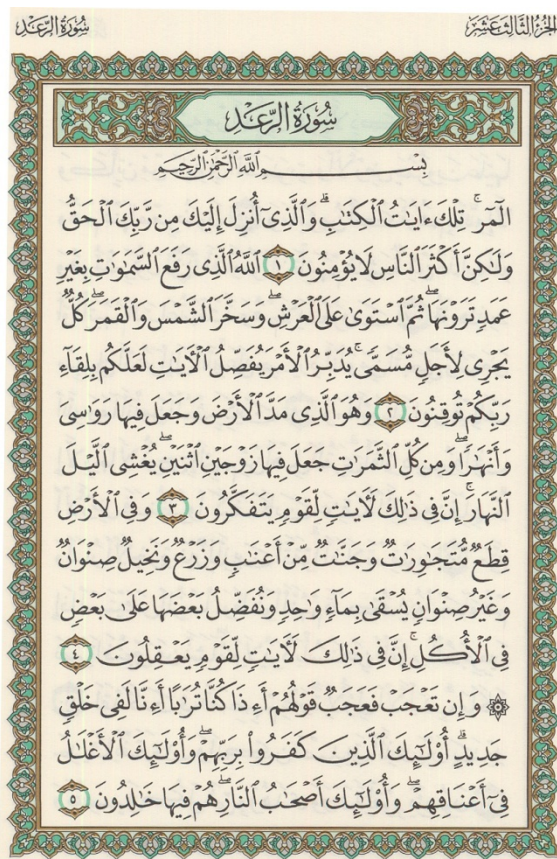 الجزء الثالث عشر
سُورَةُ الرَّعْدِ
سُورَةُ الرَّعْدِ
بِسْمِ ٱللَّهِ ٱلرَّحْمَٰنِ ٱلرَّحِيمِ
الٓمٓرۚ تِلْكَ ءَايَٰتُ ٱلْكِتَٰبِۗ وَٱلَّذِىٓ أُنزِلَ إِلَيْكَ مِن رَّبِّكَ ٱلْحَقُّ
وَلَٰكِنَّ أَكْثَرَ ٱلنَّاسِ لَا يُؤْمِنُونَ ١ ٱللَّهُ ٱلَّذِى رَفَعَ ٱلسَّمَٰوَٰتِ بِغَيْرِ
عَمَدٍ تَرَوْنَهَاۖ ثُمَّ ٱسْتَوَىٰ عَلَى ٱلْعَرْشِۖ وَسَخَّرَ ٱلشَّمْسَ وَٱلْقَمَرَۖ كُلٌّ
يَجْرِى لِأَجَلٍ مُّسَمًّىۚ يُدَبِّرُ ٱلْأَمْرَ يُفَصِّلُ ٱلْءَايَٰتِ لَعَلَّكُم بِلِقَآءِ
رَبِّكُمْ تُوقِنُونَ ٢ وَهُوَ ٱلَّذِى مَدَّ ٱلْأَرْضَ وَجَعَلَ فِيهَا رَوَٰسِىَ
وَأَنْهَٰرًاۖ وَمِن كُلِّ ٱلثَّمَرَٰتِ جَعَلَ فِيهَا زَوْجَيْنِ ٱثْنَيْنِۖ يُغْشِى ٱلَّيْلَ
ٱلنَّهَارَۚ إِنَّ فِى ذَٰلِكَ لَءَايَٰتٍ لِّقَوْمٍ يَتَفَكَّرُونَ ٣ وَفِى ٱلْأَرْضِ
قِطَعٌ مُّتَجَٰوِرَٰتٌ وَجَنَّٰتٌ مِّنْ أَعْنَٰبٍ وَزَرْعٌ وَنَخِيلٌ صِنْوَانٌ
وَغَيْرُ صِنْوَانٍ يُسْقَىٰ بِمَآءٍ وَٰحِدٍ وَنُفَضِّلُ بَعْضَهَا عَلَىٰ بَعْضٍ
فِى ٱلْأُكُلِۚ إِنَّ فِى ذَٰلِكَ لَءَايَٰتٍ لِّقَوْمٍ يَعْقِلُونَ ٤
۞ وَإِن تَعْجَبْ فَعَجَبٌ قَوْلُهُمْ أَءِذَا كُنَّا تُرَٰبًا أَءِنَّا لَفِى خَلْقٍ
جَدِيدٍۗ أُو۟لَٰٓئِكَ ٱلَّذِينَ كَفَرُوا۟ بِرَبِّهِمْۖ وَأُو۟لَٰٓئِكَ ٱلْأَغْلَٰلُ
فِىٓ أَعْنَاقِهِمْۖ وَأُو۟لَٰٓئِكَ أَصْحَٰبُ ٱلنَّارِۖ هُمْ فِيهَا خَٰلِدُونَ ٥